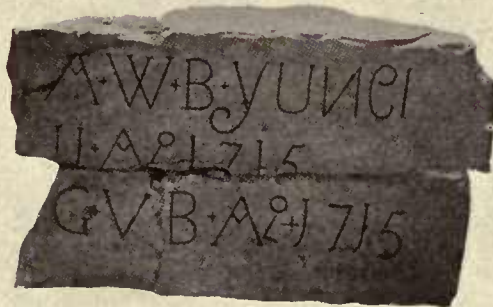 A·W·B·YUNEI
11·Aº 1715
G·V·B·Aº·1715